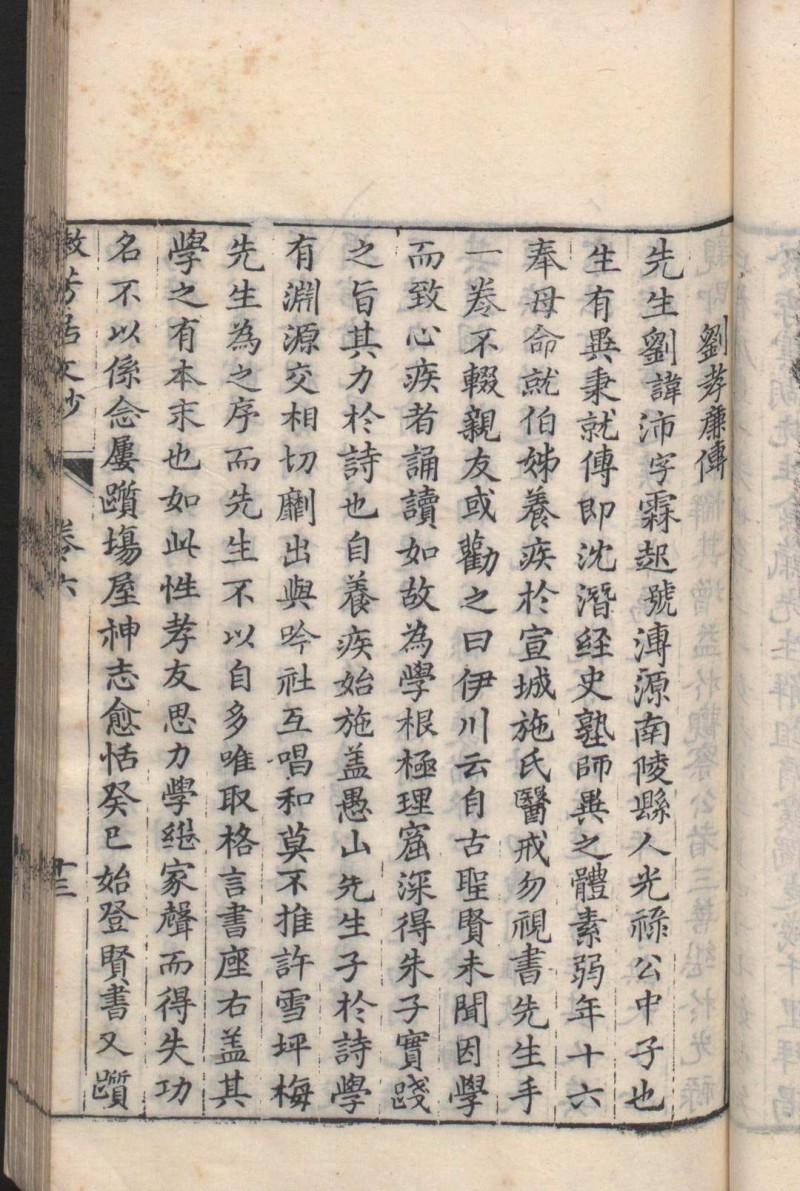 劉孝廉傳
先生劉諱沛字霖起號漙源南陵縣人光祿公中子也
生有異秉就傳即沈潛經史塾師異之體素弱年十六
奉母命就伯姊養疾於宣城施氏醫戒勿視書先生手
一卷不輟親友或勸之曰伊川云自古聖賢未聞因學
而致心疾者誦讀如故為學根極理窟深得朱子實踐
之旨其力於詩也自養疾始施盖愚山先生子於詩學
有淵源交相切劘出與吟社互唱和莫不推許雪坪梅
先生為之序而先生不以自多唯取格言書座右盖其
學之有本末也如此性孝友思力學繼家聲而得失功
名不以係念屢躓塲屋神志愈恬癸巳始登賢書又躓
芳居文鈔
卷六
十三